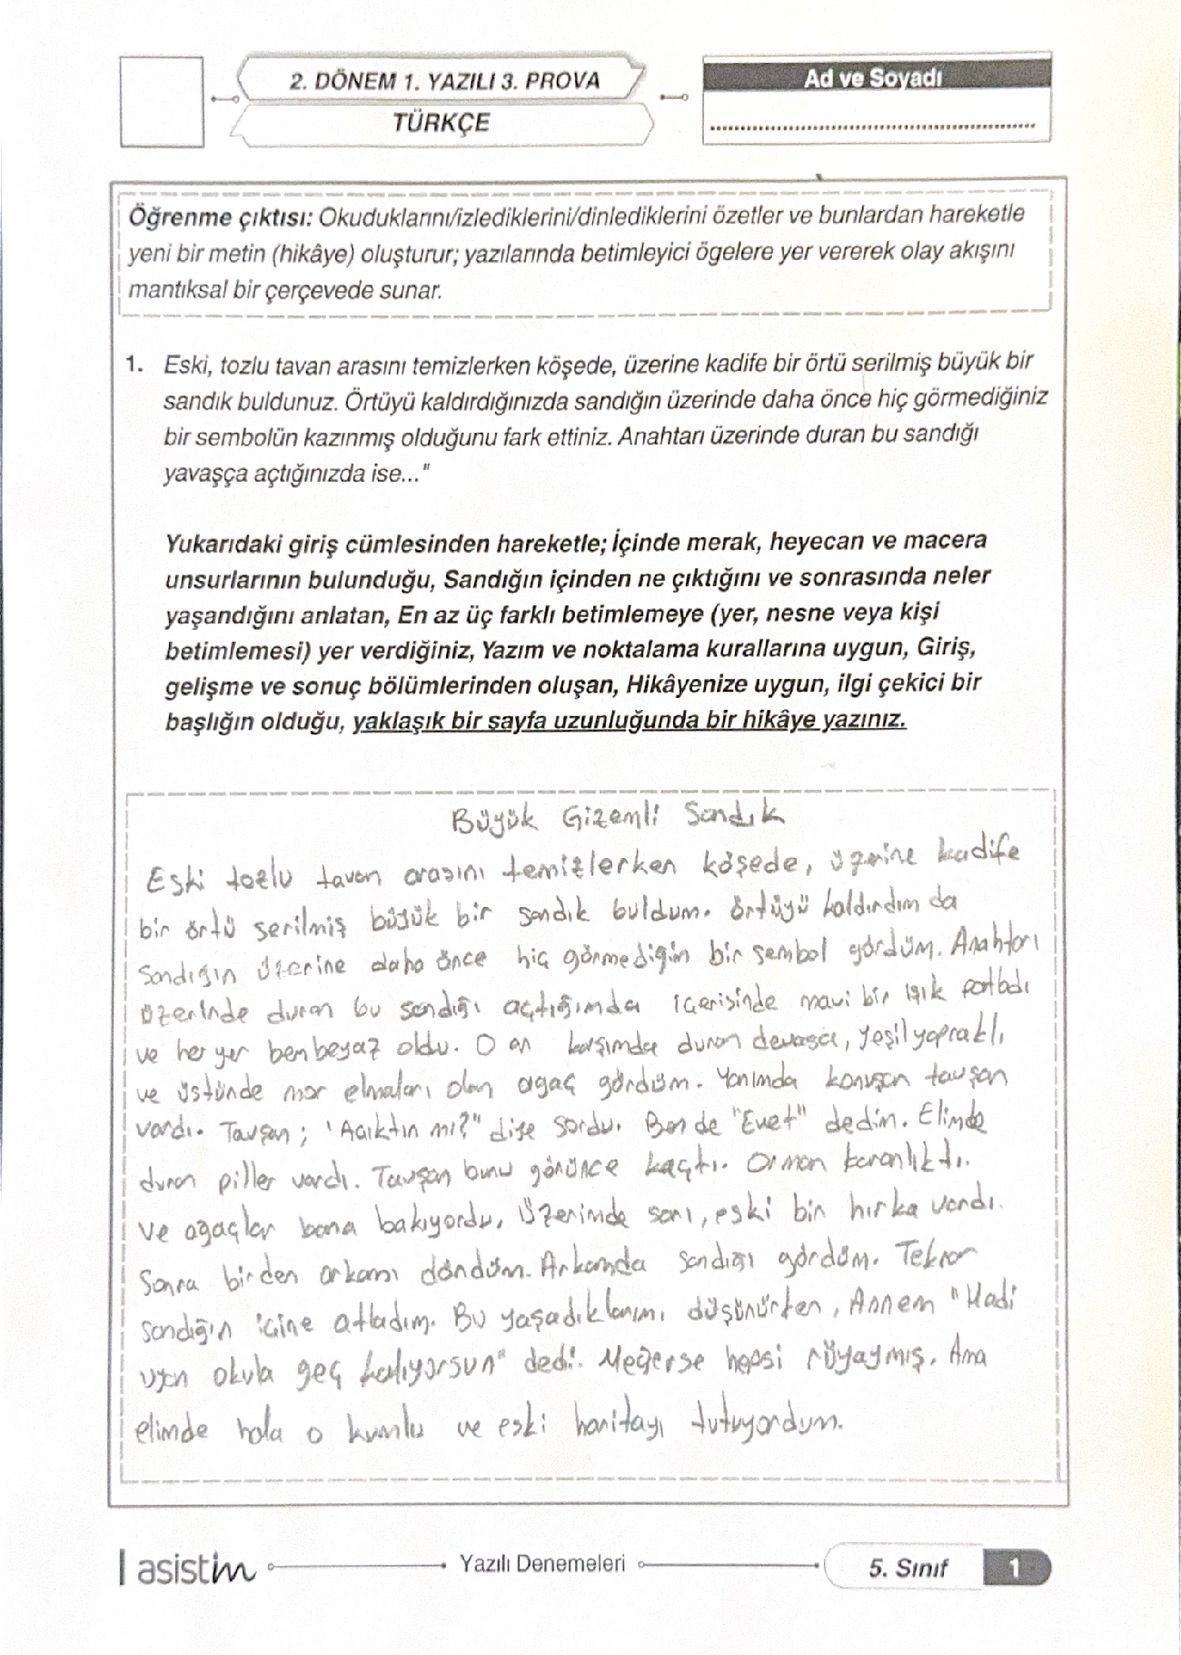 2. DÖNEM 1. YAZILI 3. PROVA
TÜRKÇE
Ad ve Soyadı
Öğrenme çıktısı: Okuduklarını/izlediklerini/dinlediklerini özetler ve bunlardan hareketle
yeni bir metin (hikâye) oluşturur; yazılarında betimleyici ögelere yer vererek olay akışını
mantıksal bir çerçevede sunar.
1. Eski, tozlu tavan arasını temizlerken köşede, üzerine kadife bir örtü serilmiş büyük bir
sandık buldunuz. Örtüyü kaldırdığınızda sandığın üzerinde daha önce hiç görmediğiniz
bir sembolün kazınmış olduğunu fark ettiniz. Anahtarı üzerinde duran bu sandığı
yavaşça açtığınızda ise..."
Yukarıdaki giriş cümlesinden hareketle; İçinde merak, heyecan ve macera
unsurlarının bulunduğu, Sandığın içinden ne çıktığını ve sonrasında neler
yaşandığını anlatan, En az üç farklı betimlemeye (yer, nesne veya kişi
betimlemesi) yer verdiğiniz, Yazım ve noktalama kurallarına uygun, Giriş,
gelişme ve sonuç bölümlerinden oluşan, Hikâyenize uygun, ilgi çekici bir
başlığın olduğu, yaklaşık bir sayfa uzunluğunda bir hikâye yazınız.
Büyük Gizemli Sandık
Eski tozlu tavan arasını temizlerken köşede, üzerine kadife
bir örtü serilmiş büyük bir sandık buldum. Örtüyü kaldırdım da
sandığın üzerine daha önce hiç görmediğin bir sembol gördüm. Anahtarı
üzerinde duran bu sandığı açtığımda içerisinde mavi bir ışık patladı
ve her yer bembeyaz oldu. O an karşımda duran devasa, yeşil yapraklı,
ve üstünde mor elmaları olan agaç gördüm. Yanımda konuşan tavşan
vardı. Tavşan; 'Acıktın mı?" diye sordu. Ben de "Evet" dedim. Elimde
duran piller vardı. Tavşan bunu görünce kaçtı. Orman karanlıktı.
ve agaçlar bana bakıyordu. Üzerimde sarı, eski bir hırka vardı.
Sonra birden arkamı döndüm. Arkamda sandığı gördüm. Tekrar
sandığın içine atladım. Bu yaşadıklarımı düşünürken, Annem "Hadi
uyan okula geç kalıyorsun" dedi. Meğerse hepsi rüyaymış. Ama
elimde hala o kumlu ve eski haritayı tutuyordum.
asistim
Yazılı Denemeleri
5. Sınıf
1